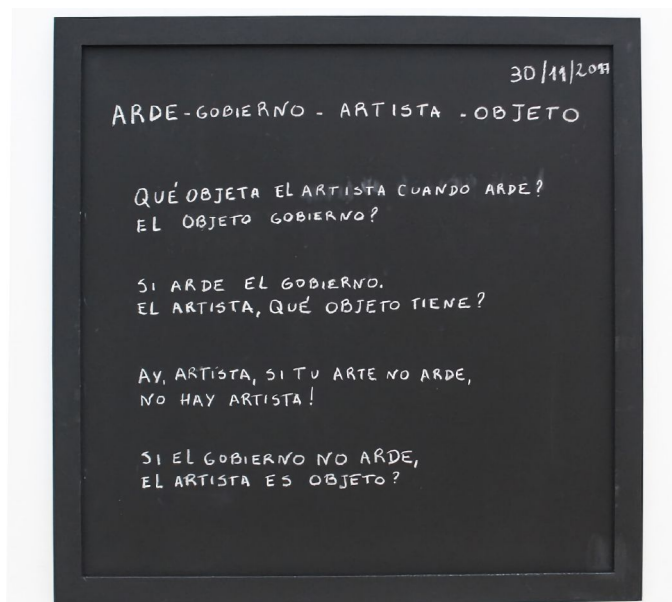 30/11/2017
ARDE-GOBIERNO - ARTISTA - OBJETO
QUÉ OBJETA EL ARTISTA CUANDO ARDE?
EL OBJETO GOBIERNO?
SI ARDE EL GOBIERNO.
EL ARTISTA, QUÉ OBJETO TIENE?
AY, ARTISTA, SI TU ARTE NO ARDE,
NO HAY ARTISTA!
SI EL GOBIERNO NO ARDE,
EL ARTISTA ES OBJETO?